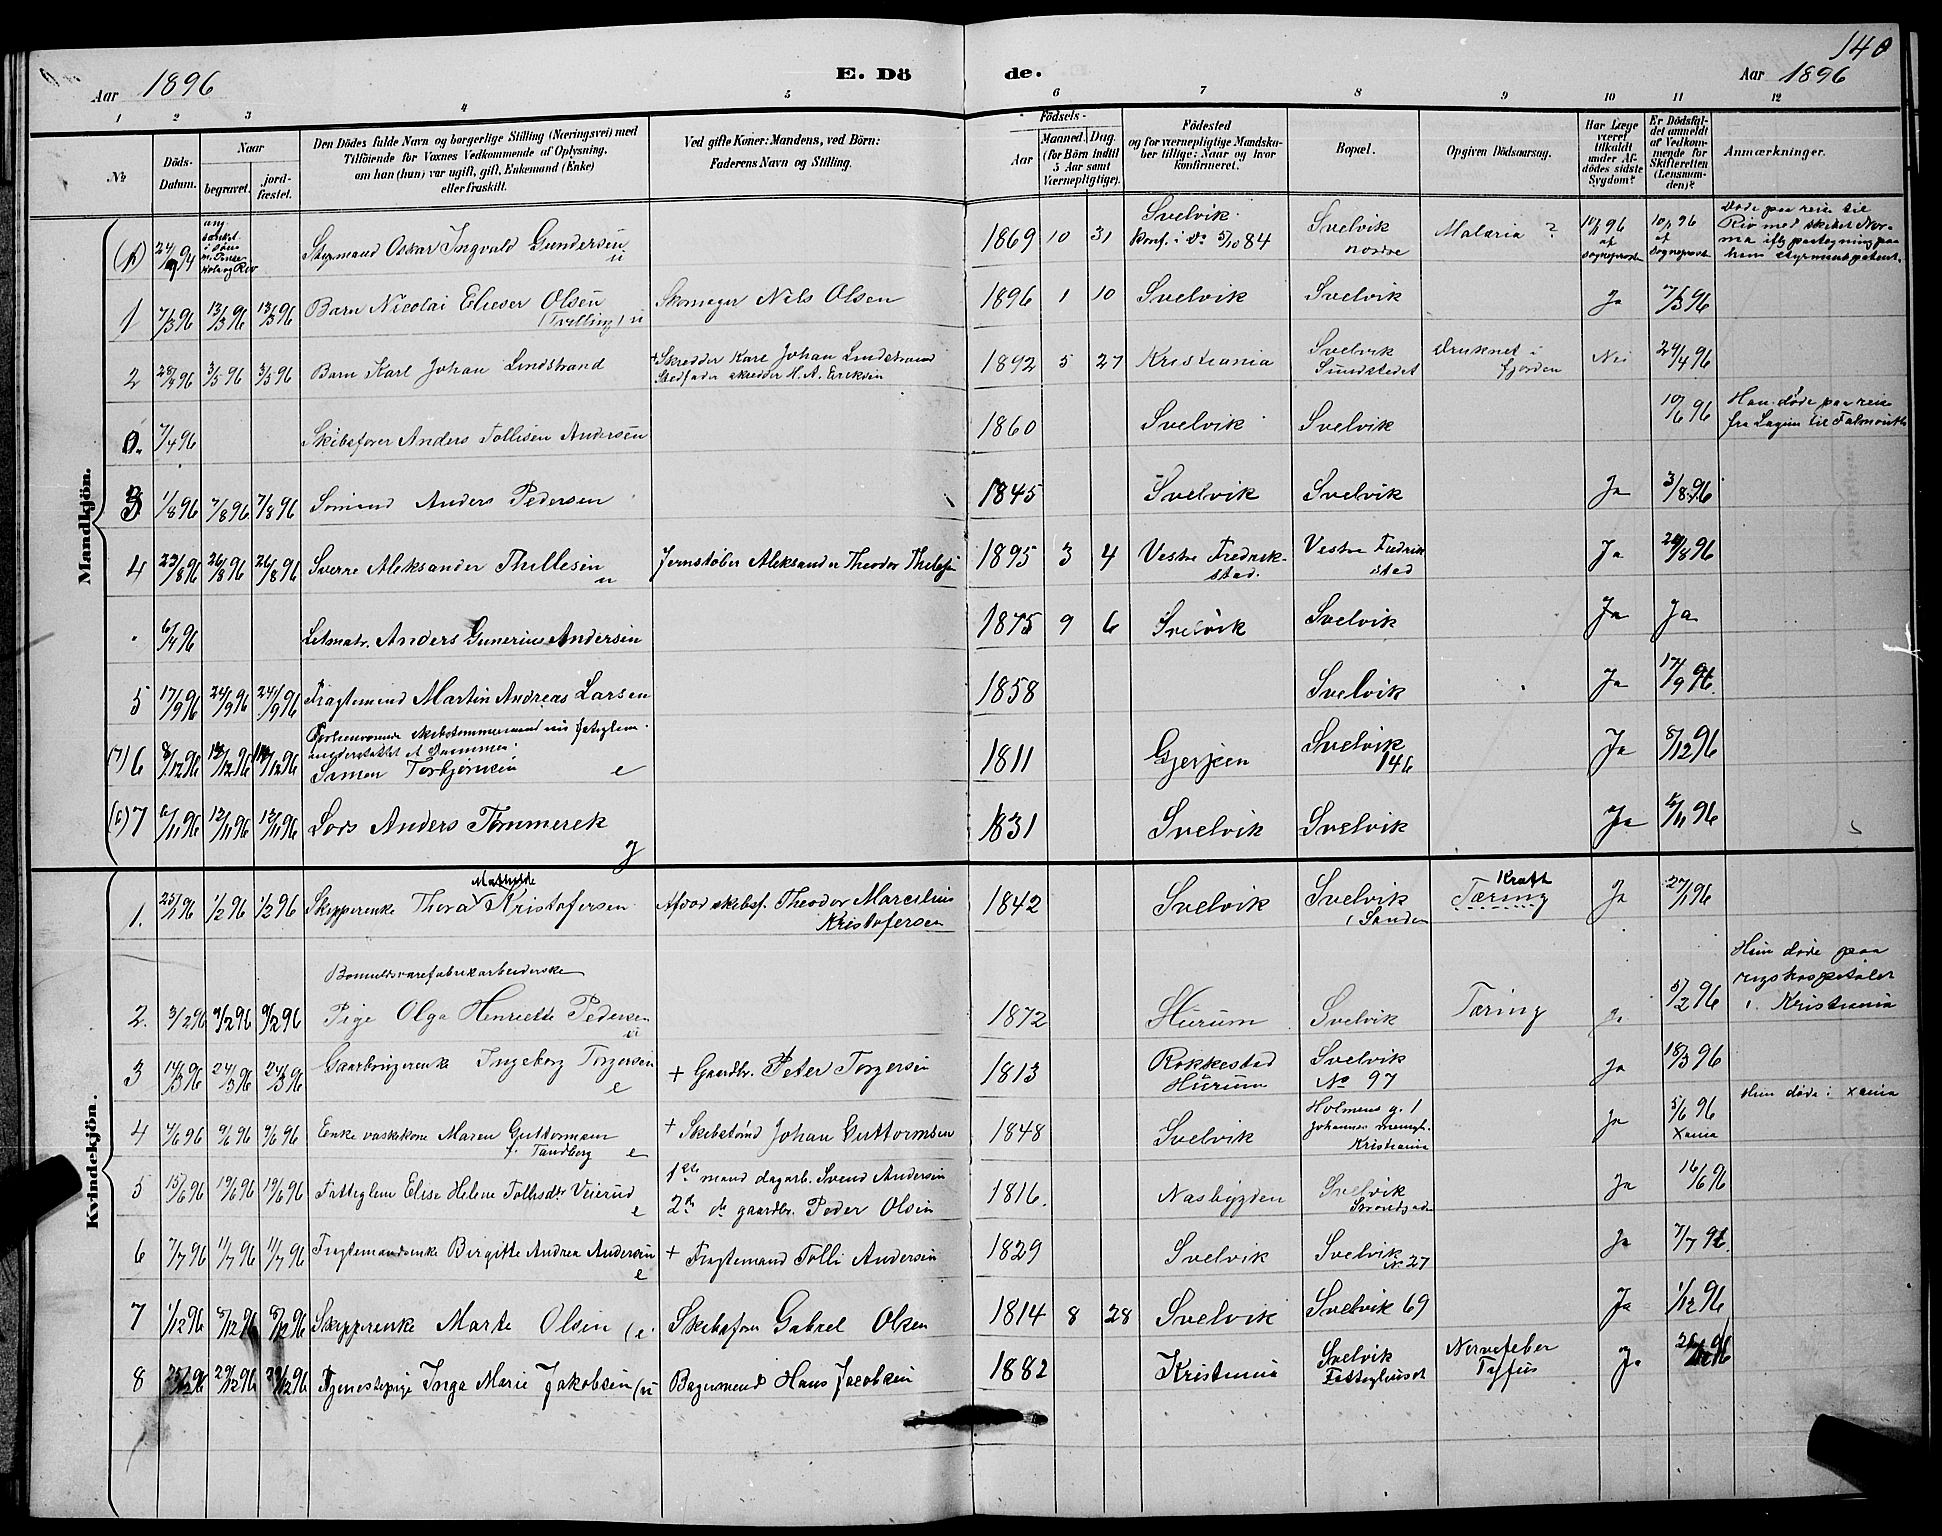 140
Aar 1896
E. Dö de.
Aar 1896
1 2 3 4 5 6 7 8 9 10 11 12
No
Döds-Datum.
Naar
begravet.
jord-fæstet.
Den Dödes fulde Navn og borgerlige Stilling (Næringsvei) med
Tilföiende for Voxnes Vedkommende af Oplysning,
om han (hun) var ugift, gift, Enkemand (Enke)
eller fraskilt.
Ved gifte Koner: Mandens, ved Börn:
Faderens Navn og Stilling.
Födsels-
Aar
Maaned. Dag.
(for Börn indtil
5 Aar samt
Værnepligtige).
Födested
og for værnepligtige Mandska-
ber tillige: Naar og hvor
konfirmeret.
Bopæl.
Opgiven Dödsaarsag.
Har Læge
været
tilkaldt
under Af-
dödes sidste
Sygdom?
Er Dödsfal-
det anmeldt
af Vedkom-
mende for
Skifteretten
(Lensman-
den)?
Anmærkninger.
Mandkjön.
24/9 94 Styrmand Oskar Ingvald Gundersen u 1869 10 31 Svelvik. Konf. i Do 5/10 84 Svelvik nordre Malaria ? 10/1 96 af Sogneprest 10/1 96 af Sogneprest Døde paa reise til
Rio med skibet Nor-
ma iflg paategning paa
hans styrmandspatent.
1 7/3 96 13/3 96 13/3 96 Barn Nicolai Elieser Olsen (Tvilling) u Skomager Nils Olsen 1896 1 10 Svelvik Svelvik Ja 7/3 96
2 28/4 96 3/5 96 3/5 96 Barn Karl Johan Lindstrand + Skredder Karl Johan Lindstrand
Stedfader skredder H. A. Eriksen 1892 5 27 Kristiania Svelvik Sundstedet Druknet i fjorden Nei 29/4 96
0. 7/4 96 Skibsfører Anders Tollisen Andersen 1860 Svelvik Svelvik 10/6 96 Han døde paa reise
fra Laguna til Falmouth
3 1/8 96 7/8 96 7/8 96 Sømand Anders Pedersen 1845 Svelvik Svelvik Ja 3/8 96
4 23/8 96 26/8 96 26/8 96 Sverre Aleksander Thillesen u Jernstøber Aleksander Theodor 1895 3 4 Vestre Fredrik-
stad. Vestre Fredrik
stad Ja 24/8 96
6/4 96 Letmatr. Anders Gunerius Andersen 1875 9 6 Svelvik Svelvik Ja Ja
5 17/9 96 24/9 96 24/9 96 Fragtemand Martin Andreas Larsen 1858 Svelvik Ja 17/9 96.
(7) 6 8/12 96 12/12 96 12/12 96 Forhenværende Skibstømmermand
Simen Torbjørnsen e 1811 Gjerpen Svelvik 146 Ja 8/12 96
(6) 7 6/11 96 12/11 96 12/11 96 Lods Anders Tømmerek g 1831 Svelvik Svelvik Ja 6/11 96
Kvindekjön.
1. 25/1 96 1/2 96 1/2 96 Skipperenke Thora Mathilde Kristofersen Afdød skibsf. Theodor Marcelius
Kristofersen 1842 Svelvik Svelvik i Sanden Kræft Tæring Ja 27/1 96
Bomuldsvarefabrikarbeiderske
2. 3/2 96 9/2 96 9/2 96 Pige Olga Henriette Pedersen u 1872 Hurum Svelvik Tæring Ja 5/2 96 Hun døde paa
rigshospitalet
i Kristiania
3 17/3 96 24/3 96 24/3 96 Gaardbrugerenke Ingeborg Torgersen e + Gaardbr. Peter Torgersen 1813 Rakkestad
Hurum Svelvik
No 97 Ja 18/3 96
4 4/6 96 9/6 96 9/6 96 Enke vaskekone Maren Guttormsen
f. Tandberg e + Skibstømd Johan Guttormsen 1848 Svelvik Holmens g. 1
Johannes menigh.
Kristiania Ja 5/6 96
Xania Hun døde i Xania
5 15/6 96 19/6 96 19/6 96 Fattiglem Elise Helene Tollisdtr Veierud e 1ste mand dagarb. Svend Andersen
2de do gaardbr. Peder Olsen 1816. Næsbygden Svelvik Ja 16/6 96
6 7/7 96 11/7 96 11/7 96 Fragtemandsenke Birgitte Andrea Andersen e + Fragtemand Tolli Andersen 1829 Svelvik Svelvik
No 27 Ja 7/7 96.
7 1/12 96 8/12 96 8/12 96 Skipperenke Marte Olsen (e. Skibsfører Gabriel Olsen 1814 8 28 Svelvik Svelvik 69 Ja 1/12 96
8 25/12 96 29/12 96 29/12 96 Tjenestepige Inga Marie Jakobsen (u Bagermand Hans Jacobsen 1882 Kristiania Svelvik
Fattighuset Nervefeber
Tyfus Ja 96